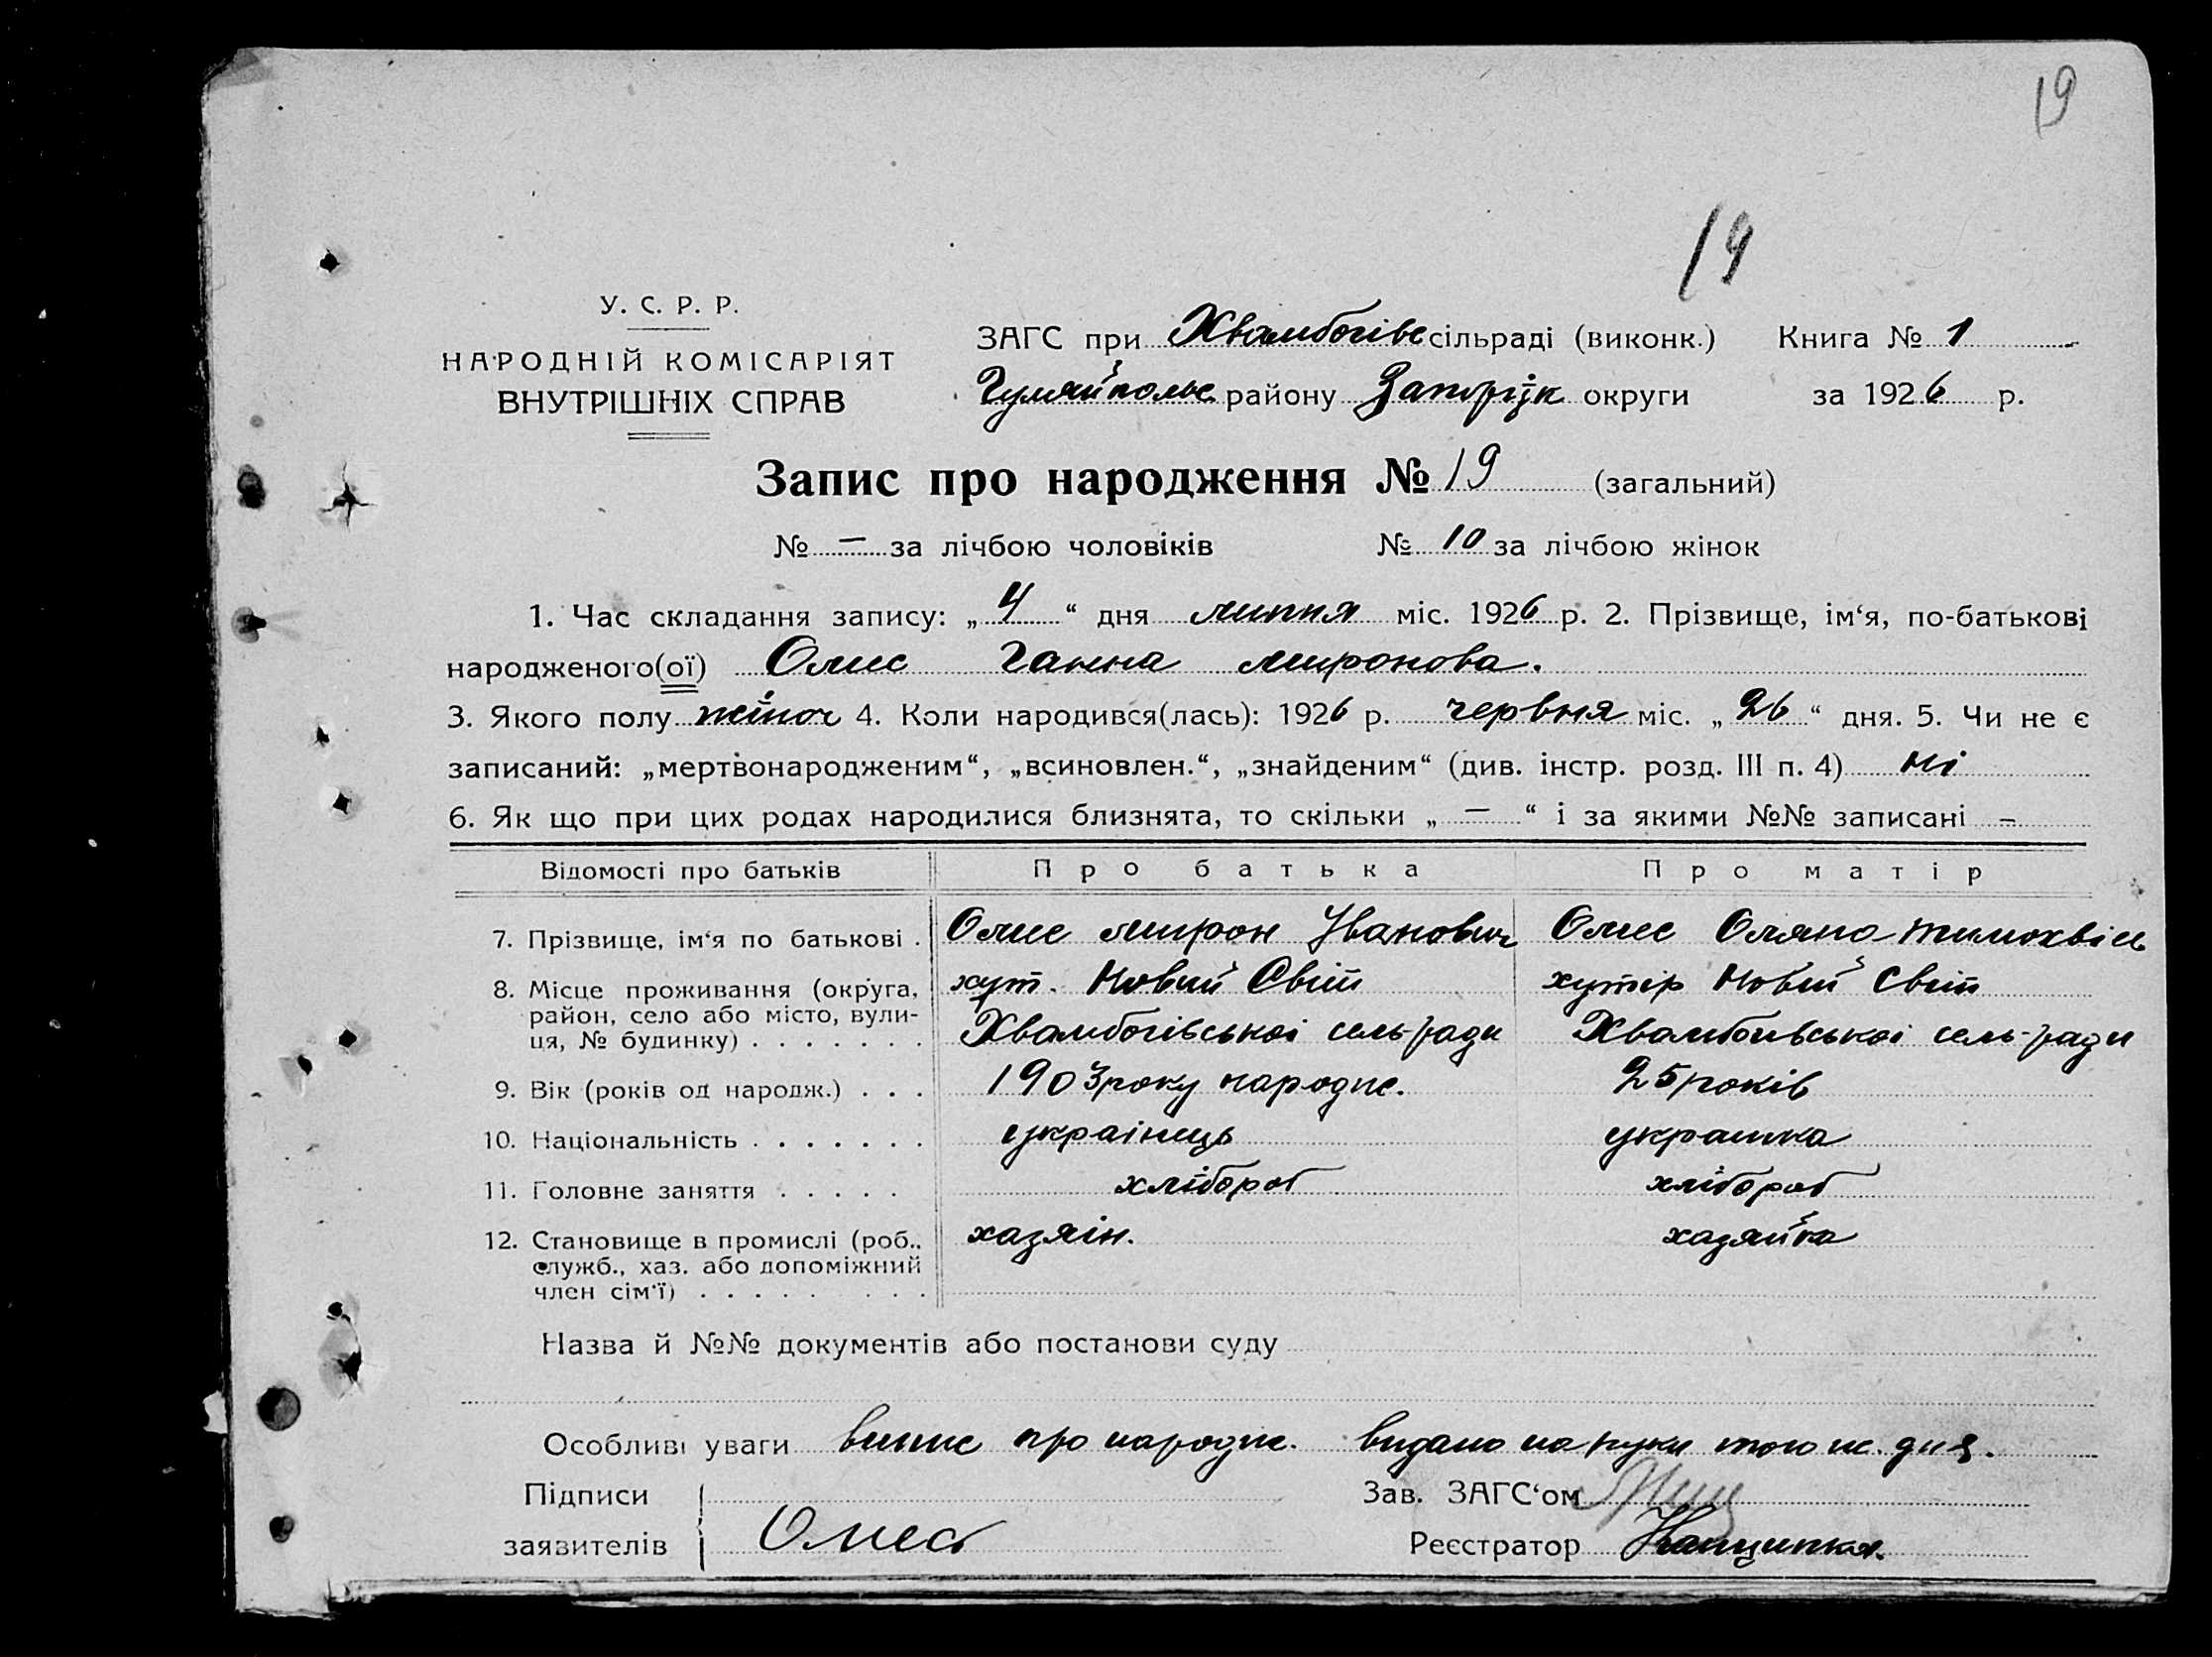 19
19
У. С. Р. Р.
НАРОДНІЙ КОМІСАРІЯТ
ВНУТРІШНІХ СПРАВ
ЗАГС при Хвамбогівс сільраді (виконк.) Книга № 1
Гуляйпольс району Запоріж округи за 1926 р.
Запис про народження № 19 (загальний)
№ – за лічбою чоловіків № 10 за лічбою жінок
1. Час складання запису: „ 4 “ дня липня міс. 1926 р. 2. Прізвище, ім‘я, по-батькові
народженого(ої) Олис Ганна миронова.
3. Якого полу жіноч 4. Коли народився(лась): 1926 р. червня міс. „ 26 “ дня. 5. Чи не є
записаний: „мертвонародженим“, „всиновлен.“, „знайденим“ (див. інстр. розд. III п. 4) ні
6. Як що при цих родах народилися близнята, то скільки „ — “ і за якими №№ записані –
Відомості про батьків Про батька Про матір
7. Прізвище, ім‘я по батькові . Олис мирон Іванович Олис Оляна тимохвієв
8. Місце проживання (округа, район, село або місто, вулиця, № будинку) . . . . . . . хут. Новий Світ хутір Новий Світ
Хвамбогівської сель-ради Хвамбогівської сель-ради
9. Вік (років од народж.) . . . 1903 року народж. 25 років
10. Національність . . . . . . . українець українка
11. Головне заняття . . . . . хлібороб хлібороб
12. Становище в промислі (роб., служб., хаз. або допоміжний член сім‘ї) . . . . . . . . хазяін. хазяйка
Назва й №№ документів або постанови суду
Особливі уваги випис про народж. видано на руки того ж. дня.
Підписи Зав. ЗАГС‘ом
заявителів Олис Реєстратор